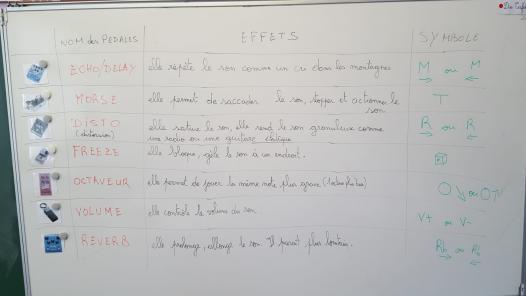 NOM des PEDALES EFFETS SYMBOLE
ECHO/DELAY elle répète le son comme un cri dans les montagnes M ou M
MORSE elle permet de saccader le son, stopper et actionner le son T
DISTO elle sature le son, elle rend le son granuleux comme R ou R
(distorsion) une radio ou une guitare
FREEZE elle bloque, gèle le son à un endroit.
OCTAVEUR elle permet de jouer la même note plus grave O ou O
VOLUME elle contrôle le volume du son V+ ou V-
REVERB elle prolonge, allonge le son. Il paraît plus lointain. Rb ou Rb